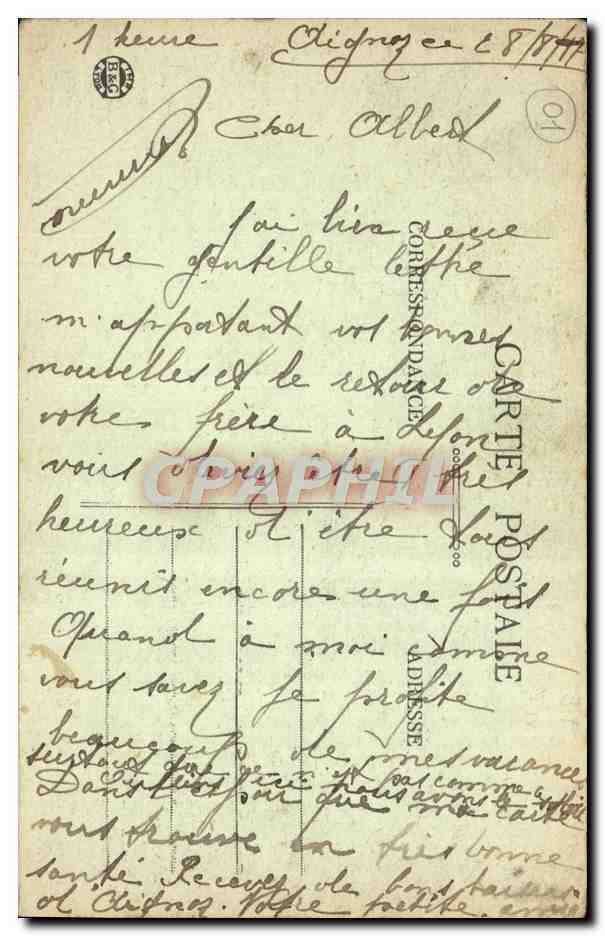 1 heure Aignoz ce 28/8/17
B&G
LYON
01
Cher Albert
J'ai bien reçue
votre gentille lettre
m'apportant vos bonnes
nouvelles et le retour de
votre frère à Lyon
vous devez êtres très
heureux d'être tous
réunis encore une fois
Quand à moi comme
vous savez je profite
beaucoup de mes vacances
surtout que
pas comme à
nous avons
Dans l'espoir que ma carte
vous trouve en très bonne
santé Recevez de bons baisers
d'Aignoz. Votre petite amie
CORRESPONDANCE
CARTE POSTALE
ADRESSE
CPAPHIL